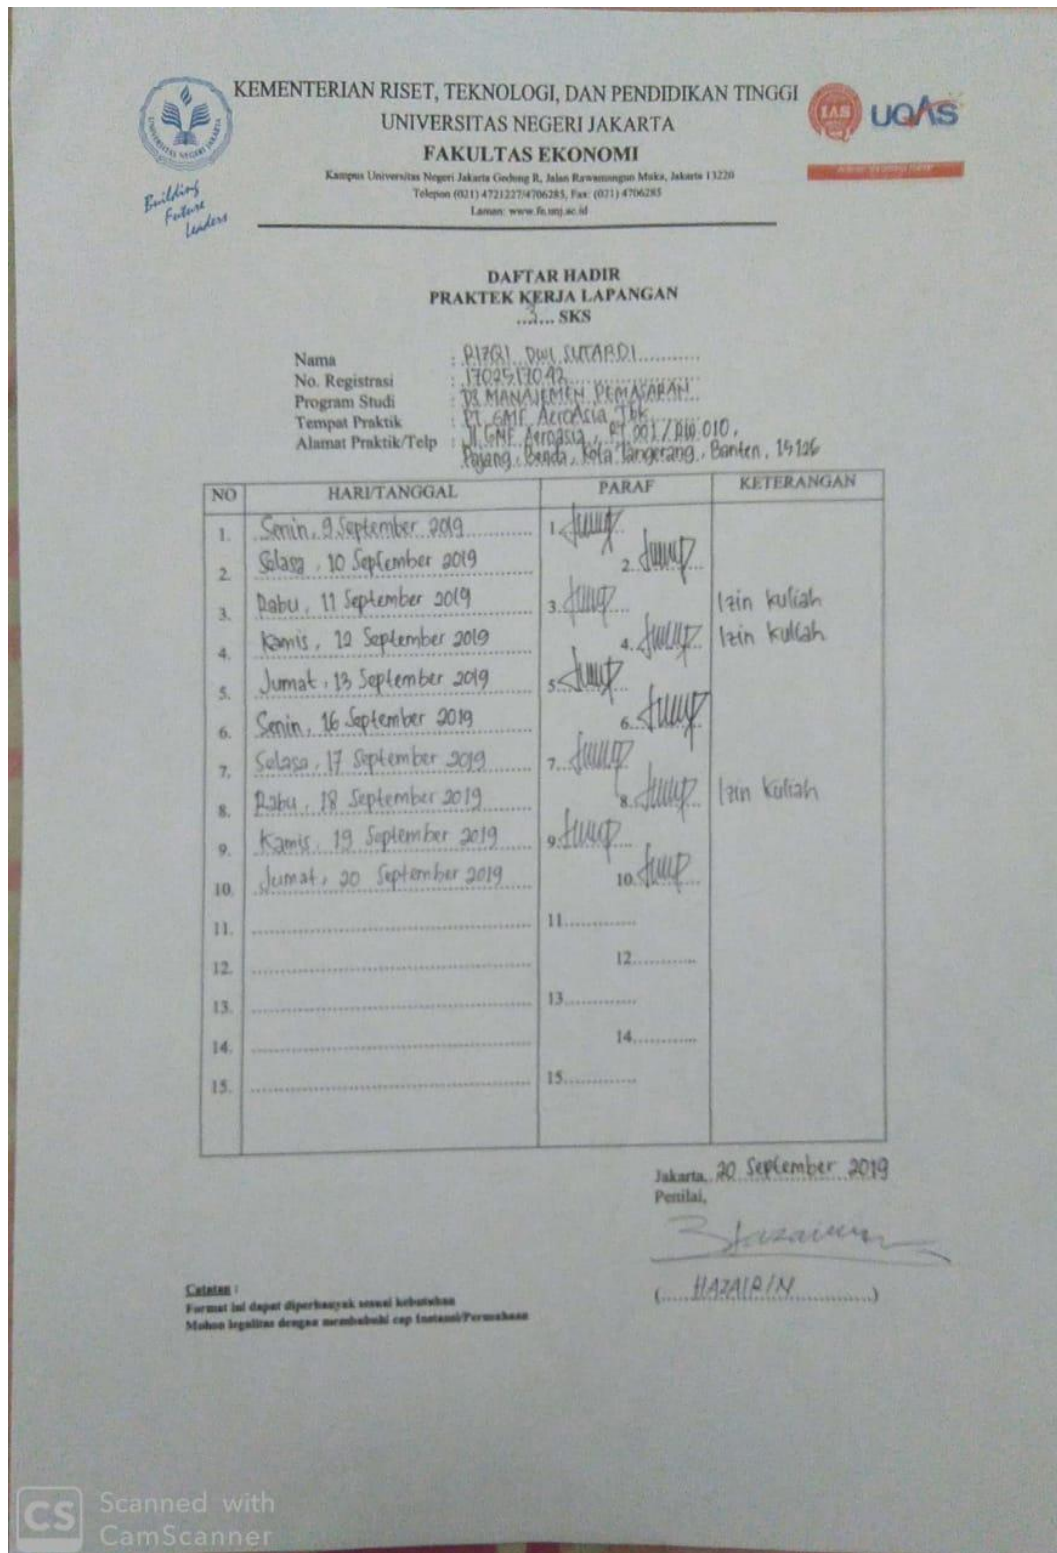 KEMENTERIAN RISET, TEKNOLOGI, DAN PENDIDIKAN TINGGI
UNIVERSITAS NEGERI JAKARTA
FAKULTAS EKONOMI
Kampus Universitas Negeri Jakarta Gedung R, Jalan Rawamangun Muka, Jakarta 13220
Telepon (021) 4721227/4706285, Fax: (021) 4706285
Laman: www.fe.unj.ac.id
UNIVERSITAS NEGERI JAKARTA
Building
Future
Leaders
IAS
UQAS
DAFTAR HADIR
PRAKTEK KERJA LAPANGAN
SKS
Nama : RIZQI DWI SUTARDI
No. Registrasi : 1702517042
Program Studi : D3 MANAJEMEN PEMASARAN
Tempat Praktik : PT. GMF AeroAsia Tbk
Alamat Praktik/Telp : Jl. GMF Aeroasia, RT 001/RW 010,
Pajang, Benda, Kota Tangerang, Banten, 15126
NO HARI/TANGGAL PARAF KETERANGAN
1. Senin, 9 September 2019 1.
2. Selasa, 10 September 2019 2.
3. Rabu, 11 September 2019 3. Izin kuliah
4. Kamis, 12 September 2019 4. Izin kuliah
5. Jumat, 13 September 2019 5.
6. Senin, 16 September 2019 6.
7. Selasa, 17 September 2019 7.
8. Rabu, 18 September 2019 8. Izin kuliah
9. Kamis, 19 September 2019 9.
10. Jumat, 20 September 2019 10.
11. 11.
12. 12.
13. 13.
14. 14.
15. 15.
Jakarta, 20 September 2019
Penilai,
(HAZAIRIN)
Catatan :
Format ini dapat diperbanyak sesuai kebutuhan
Mohon legalitas dengan membubuhi cap Instansi/Perusahaan
CS Scanned with
CamScanner